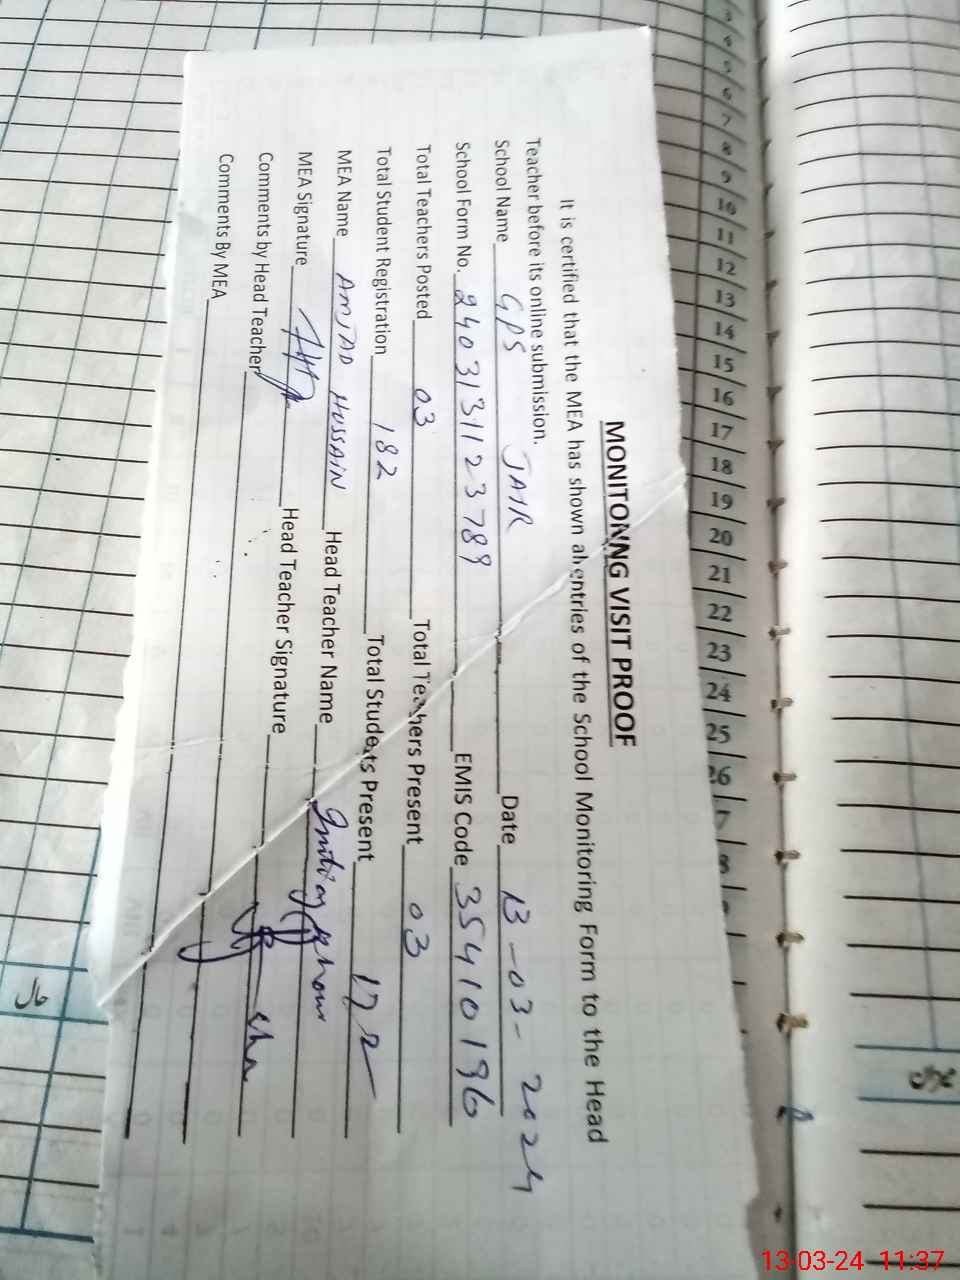 MONITORNG VISIT PROOF
It is certified that the MEA has shown all entries of the School Monitoring Form to the Head
Teacher before its online submission.
School Name GPS JAIR Date 13-03-2024
School Form No. 2403131123789 EMIS Code 35410196
Total Teachers Posted 03 Total Teachers Present 03
Total Student Registration 182 Total Students Present 172
MEA Name AMJAD HUSSAIN Head Teacher Name
MEA Signature Head Teacher Signature
Comments by Head Teacher
Comments By MEA
3
4
5
6
7
8
9
10
11
12
13
14
15
16
17
18
19
20
21
22
23
24
25
26
7
8
حال
میزان
13-03-24 11:37